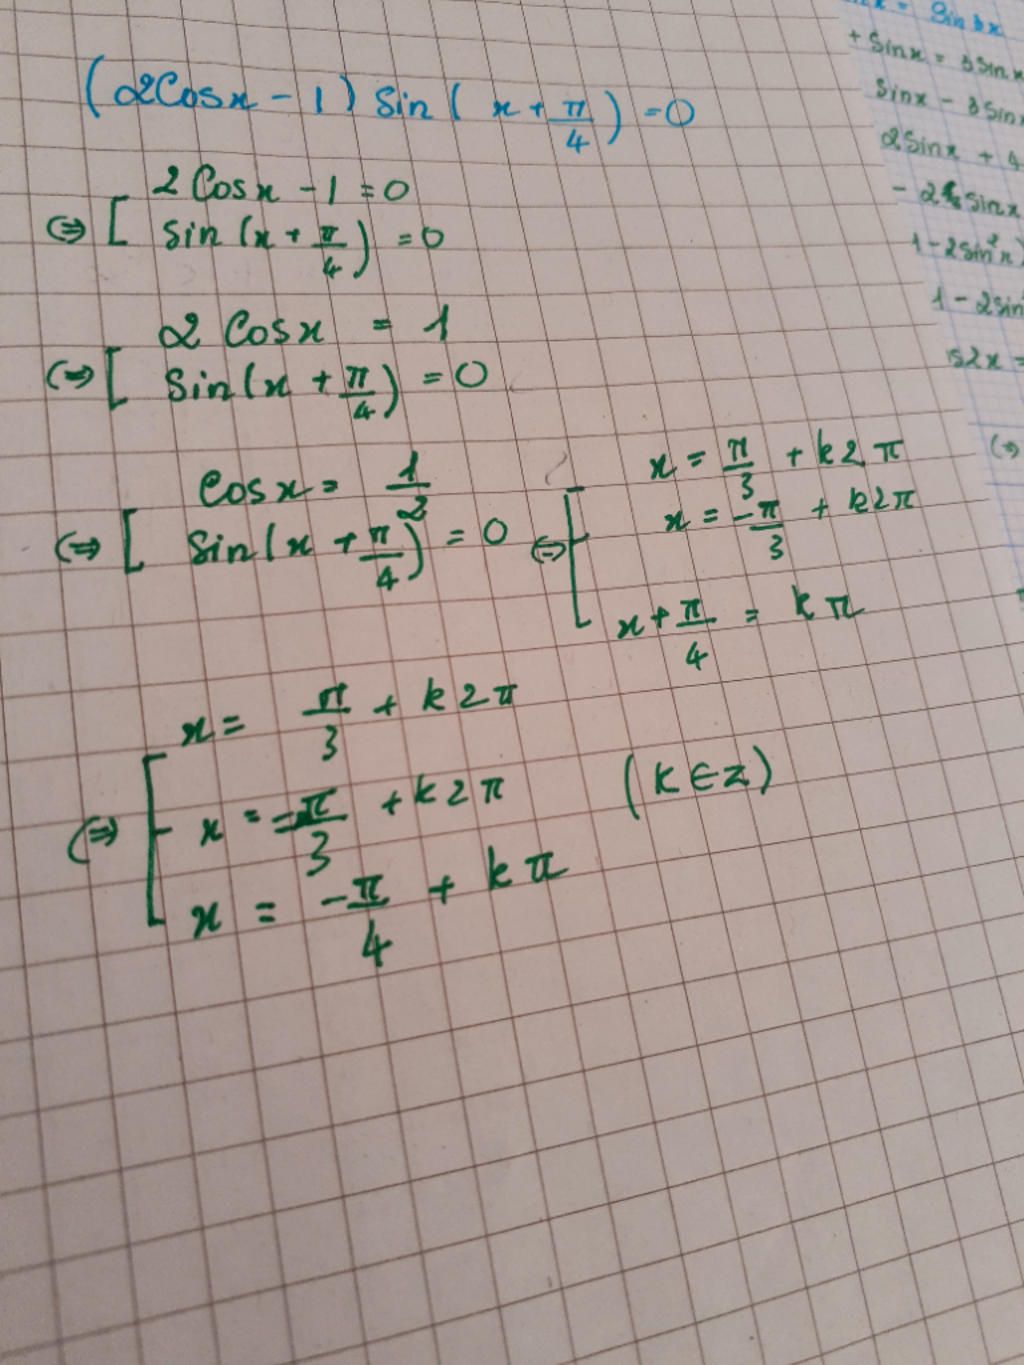 (2Cosx - 1) Sin( x + π/4 ) = 0
2 Cosx - 1 = 0
⇔ [ Sin (x + π/4) = 0
2 Cosx = 1
⇔ [ Sin(x + π/4) = 0
Cosx = 1/2
⇔ [ Sin(x + π/4) = 0 ⇔ [
x = π/3 + k2π
x = -π/3 + k2π
x + π/4 = kπ
x = π/3 + k2π
⇔ [ x = -π/3 + k2π (k ∈ z)
x = -π/4 + kπ
Sin3x
+ Sinx = 3Sinx
Sinx - 3Sinx
2Sinx + 4
Sinx
1 - 2Sin²x)
1 - 2Sin
s2x =
(⇒